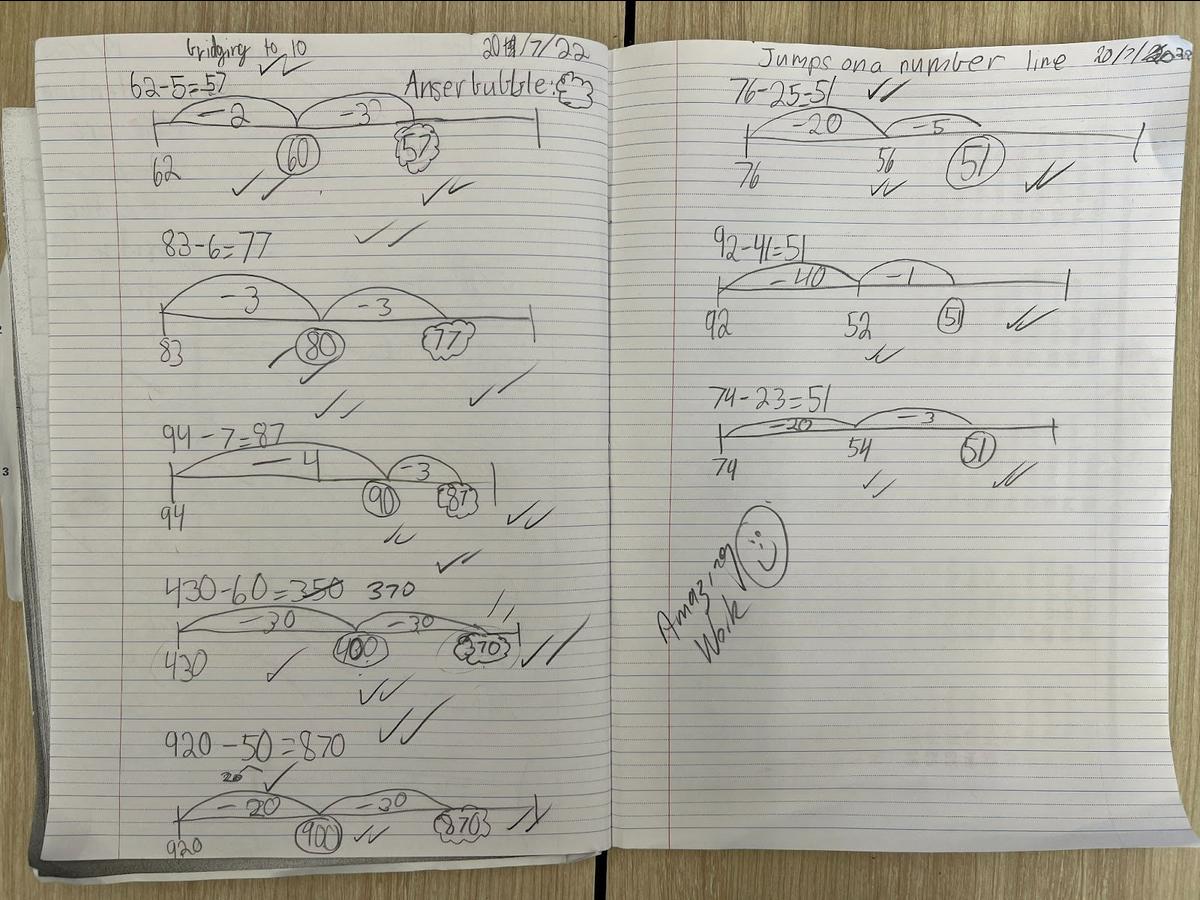 Bridging to 10
20/7/22
62-5=57
Anser bubble:
-2 -3
62 60 57
83-6=77
-3 -3
83 80 77
94-7=87
-4 -3
94 90 87
430-60=350 370
-30 -30
430 400 370
920-50=870
20
-20 -30
920 900 870
Jumps on a number line 20/7/2022
76-25=51
-20 -5
76 56 51
92-41=51
-40 -1
92 52 51
74-23=51
-20 -3
74 54 51
Amazing
Work